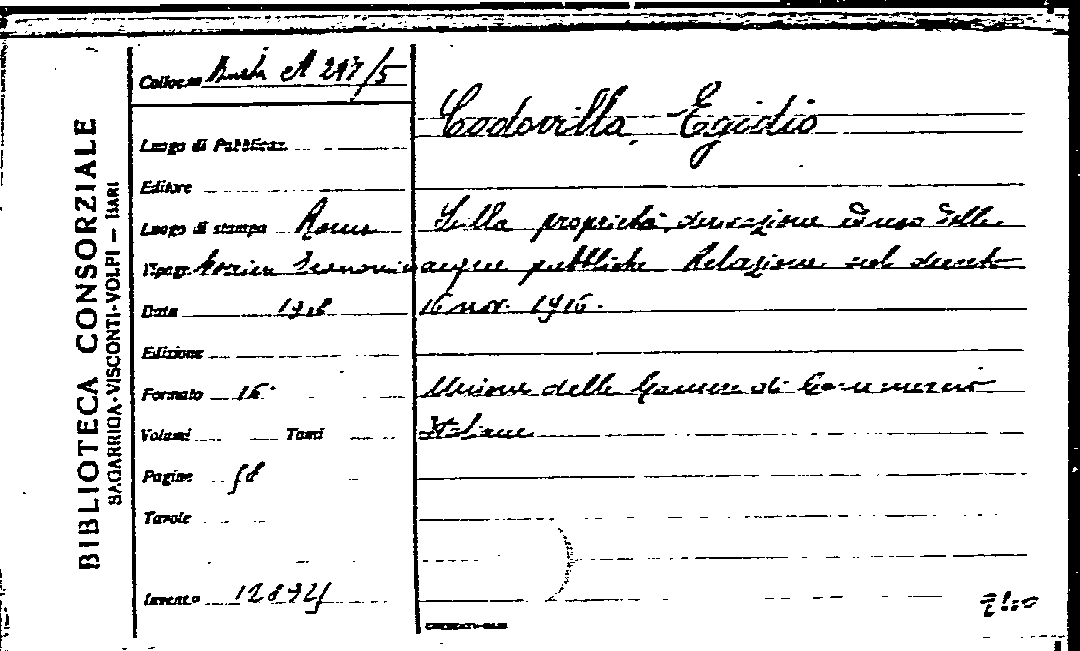 BIBLIOTECA CONSORZIALE
SAGARRIGA-VISCONTI-VOLPI — BARI
Collocaz. Busta A 217/5
Luogo di Pubblicaz.
Editore
Luogo di stampa Roma
Tipogr.
Data
Edizione
Formato 16°
Volumi Tomi
Pagine 58
Tavole
Invent.o 12892
Codovilla, Egidio
Sulla proprietà, derivazione ed uso delle
acque pubbliche Relazione sul decreto
16 nov. 1916.
Unione delle Camere di Commercio
Italiane